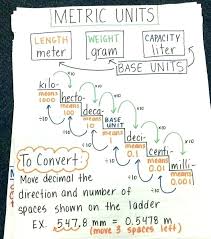 METRIC UNITS
LENGTH meter
WEIGHT gram
CAPACITY liter
BASE UNITS
kilo- means 1000
hecto- means 100
deca- means 10
BASE UNIT
deci- means 0.1
centi- means 0.01
milli- means 0.001
×10 ×10 ×10 ×10 ×10 ×10
÷10 ÷10 ÷10 ÷10 ÷10 ÷10
To Convert:
Move decimal the
direction and number of
spaces shown on the ladder
EX: 547.8 mm = 0.5478 m
(move 3 spaces left)